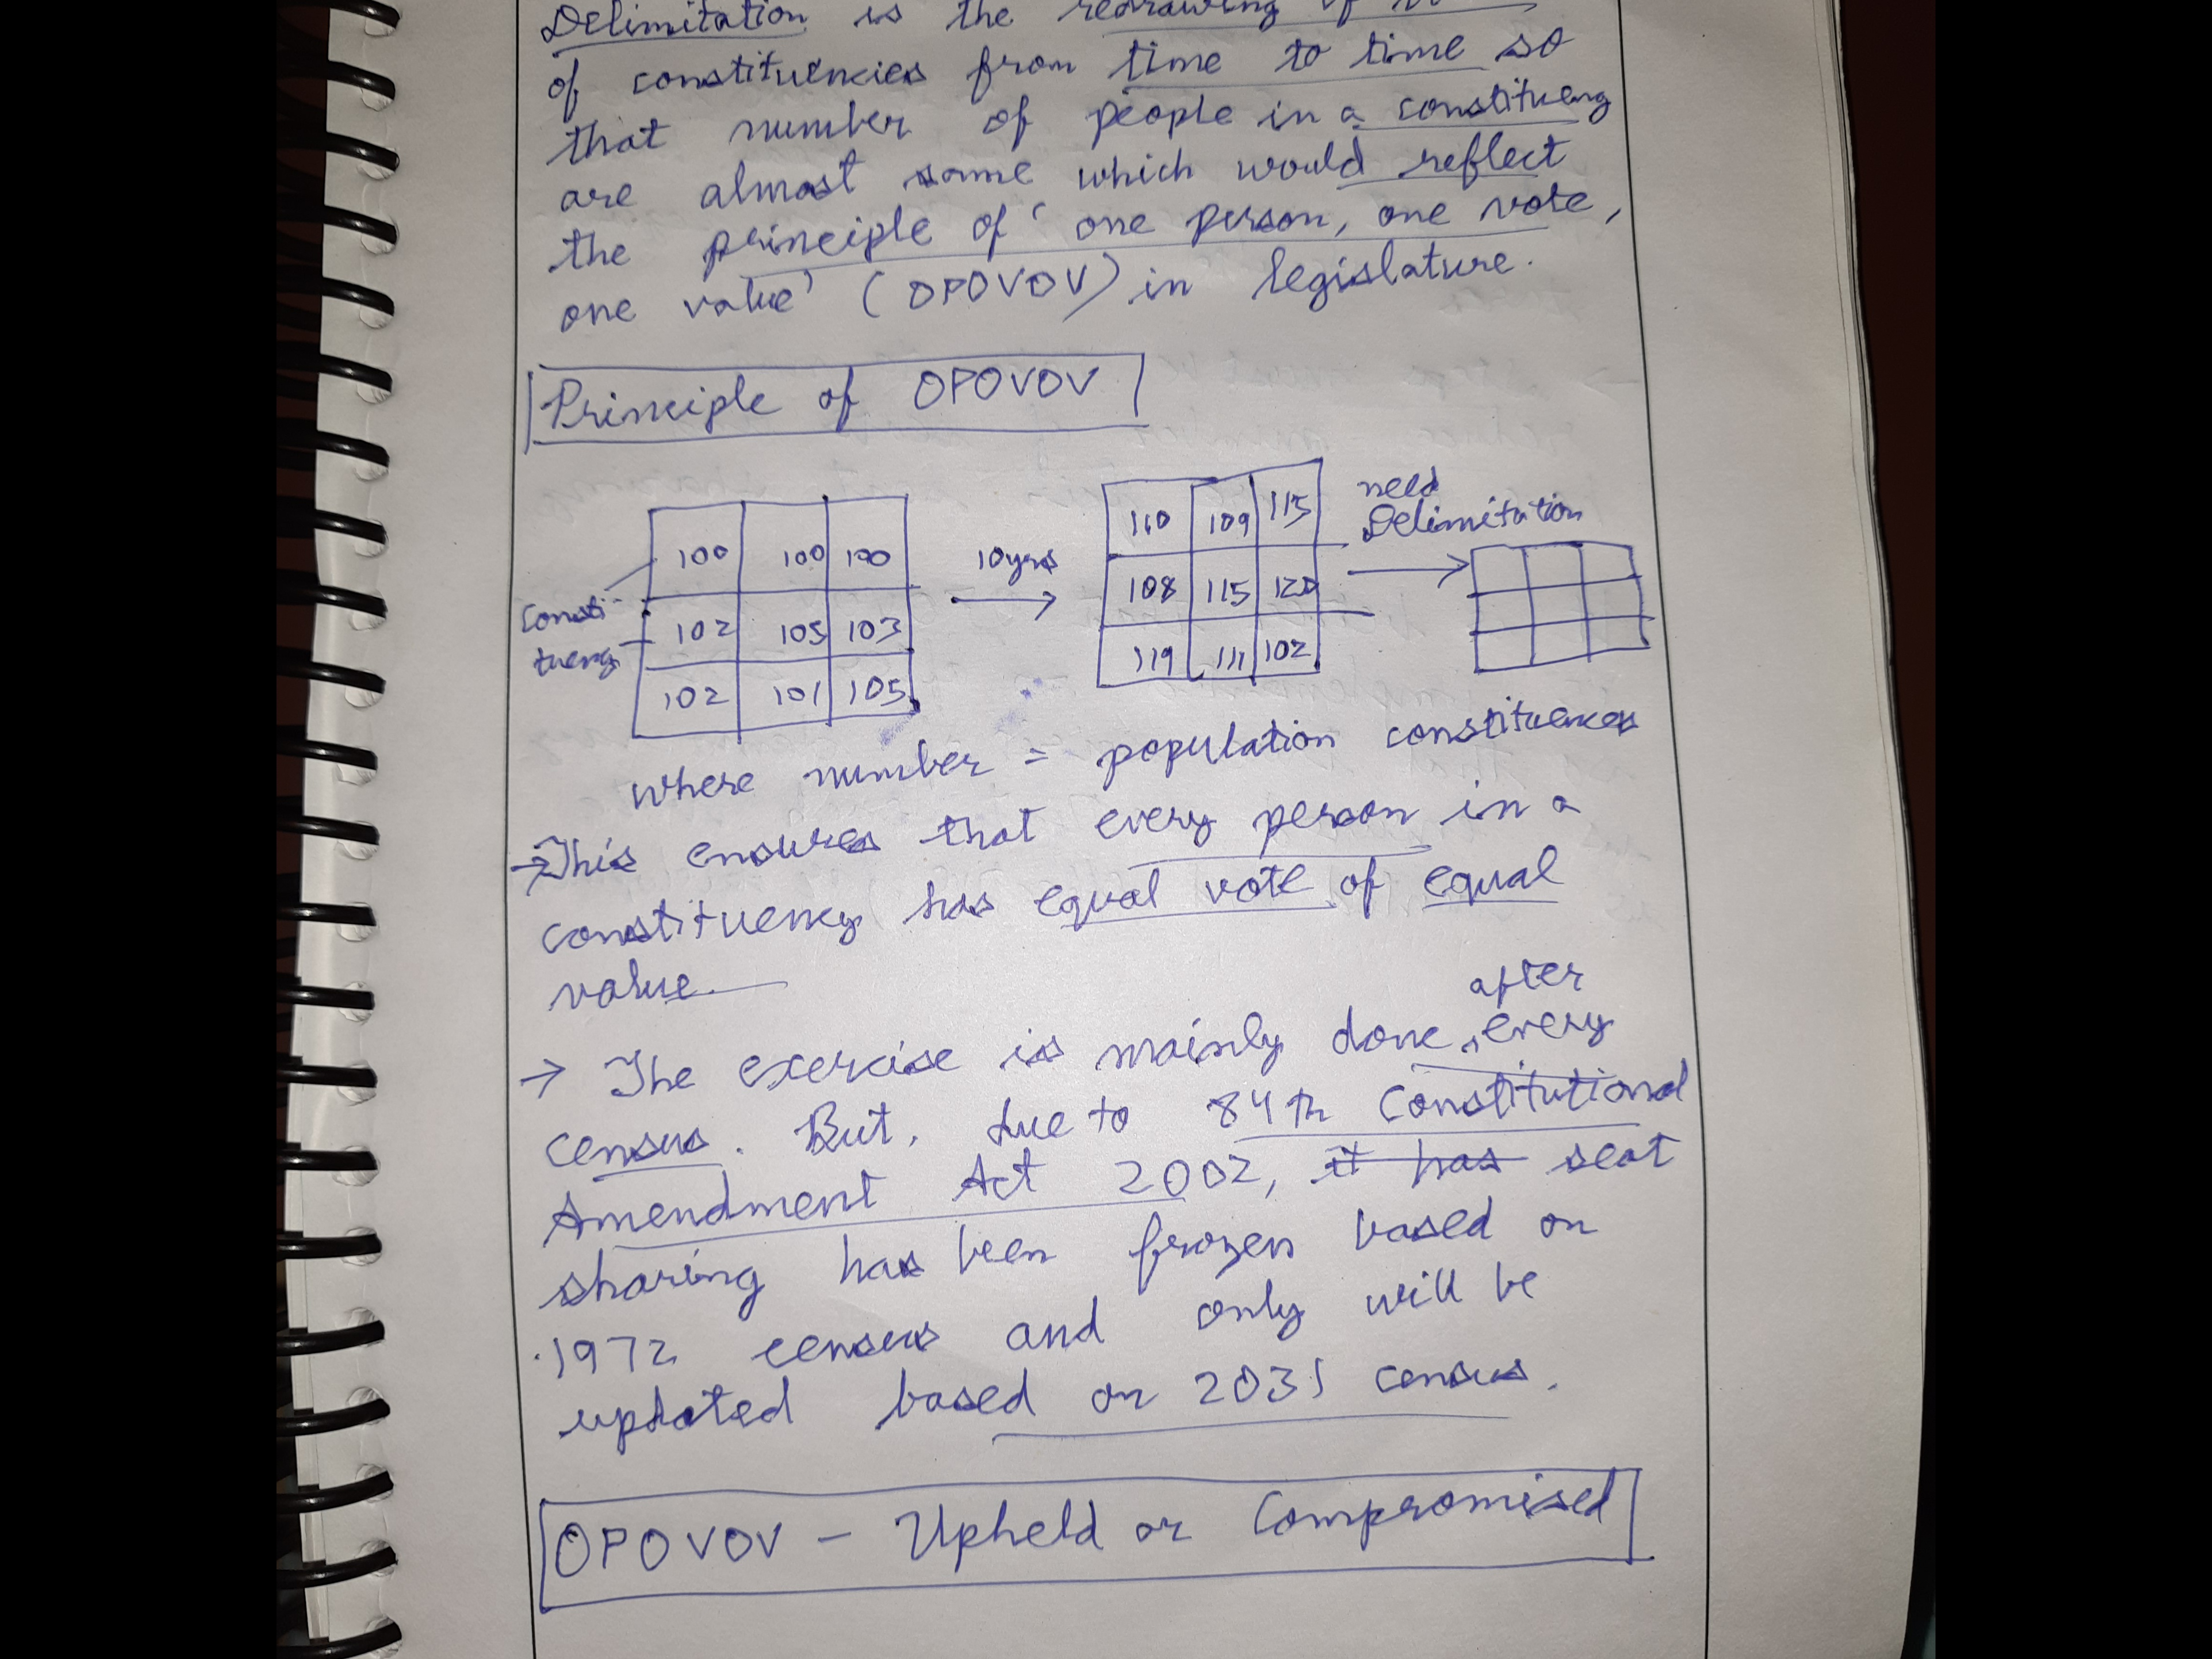 Delimitation is the redrawing of
of constituencies from time to time so
that number of people in a constitueny
are almost same which would reflect
the principle of ' one person, one vote,
one value' (OPOVOV) in legislature.
Principle of OPOVOV
100 100 100
102 105 103
102 101 105
Consti-
tueny
10yrs
110 109 115
108 115 120
119 111 102
need
Delimitation
where number = population constituences
→ This ensures that every person in a
constituency has equal vote of equal
value.
after
→ The exercise is mainly done, every
census. But, due to 84th Constitutional
Amendment Act 2002, it has seat
sharing has been frozen based on
1972 census and only will be
updated based on 2031 census.
OPOVOV - Upheld or Compromised